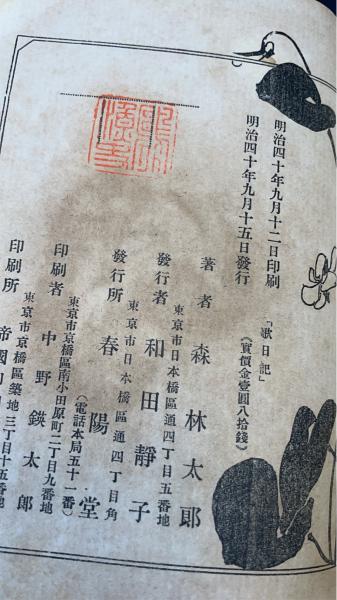 明治四十年九月十二日印刷
明治四十年九月十五日發行
「歌日記」
(實價金壹圓八拾錢)
著者 森林太郎
東京市日本橋區通四丁目五番地
發行者 和田靜子
東京市日本橋區通四丁目角
發行所 春陽堂
(電話本局五十一番)
東京市京橋區南小田原町二丁目九番地
印刷者 中野鍈太郎
東京市京橋區築地三丁目十五番地
印刷所 帝國印